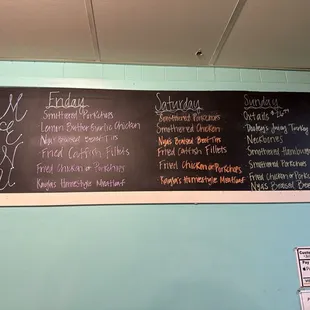 MENU
Friday
Smothered Porkchops
Lemon Butter Garlic Chicken
Nya's Braised Beef Tips
Fried Catfish Fillets
Fried Chicken or Porkchops
Kayla's Homestyle Meatloaf
Saturday
Smothered Porkchops
Smothered Chicken
Nya's Braised Beef Tips
Fried Catfish Fillets
Fried Chicken or Porkchops
Kayla's Homestyle Meatloaf
Sunday
Oxtails
Turkey
Neckbones
Smothered Hamburger
Smothered Porkchops
Fried Chicken or Pork
Nya's Braised Beef